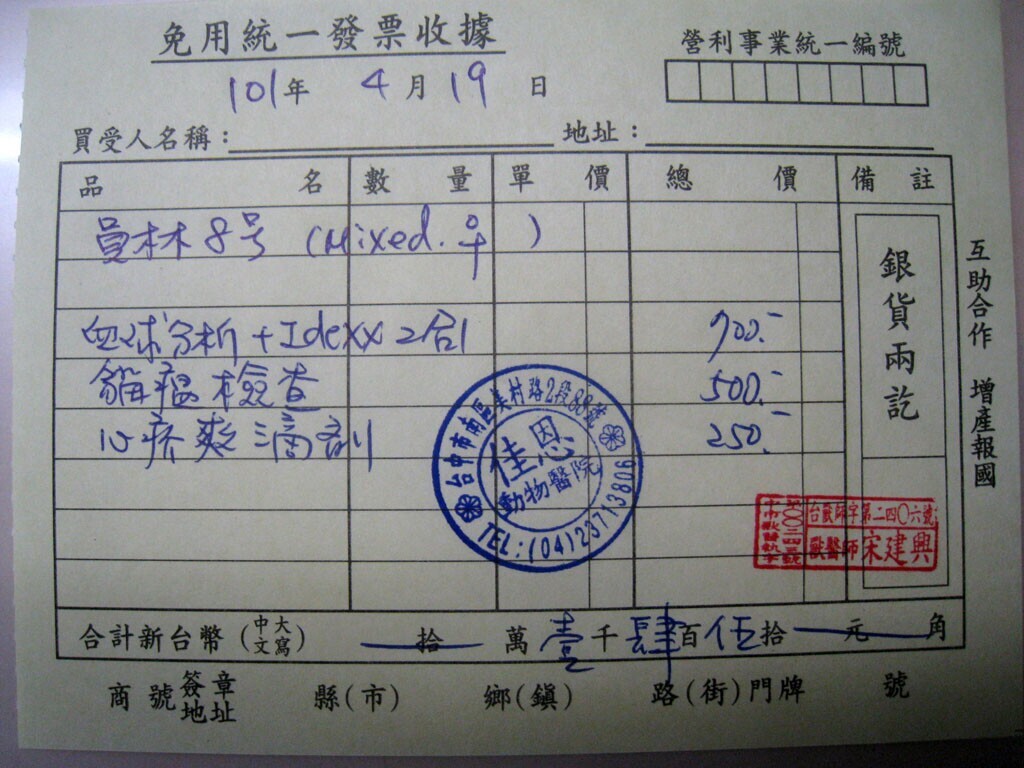 免用統一發票收據
營利事業統一編號
101年 4月19日
買受人名稱： 地址：
品名 數量 單價 總價 備註
員林8号 (Mixed. ♀)
血球分析+Idexx2合1 700.-
貓瘟檢查 500.-
心疥爽滴劑 250.-
銀貨兩訖
互助合作 增產報國
台中市南區美村路2段88號
佳恩
動物醫院
TEL:(04)23713806
台獸師字第二四〇六號
獸醫師宋建興
合計新台幣(中文大寫) 拾 萬 壹 千 肆 百 伍 拾 元 角
商號簽章地址 縣(市) 鄉(鎮) 路(街)門牌 號